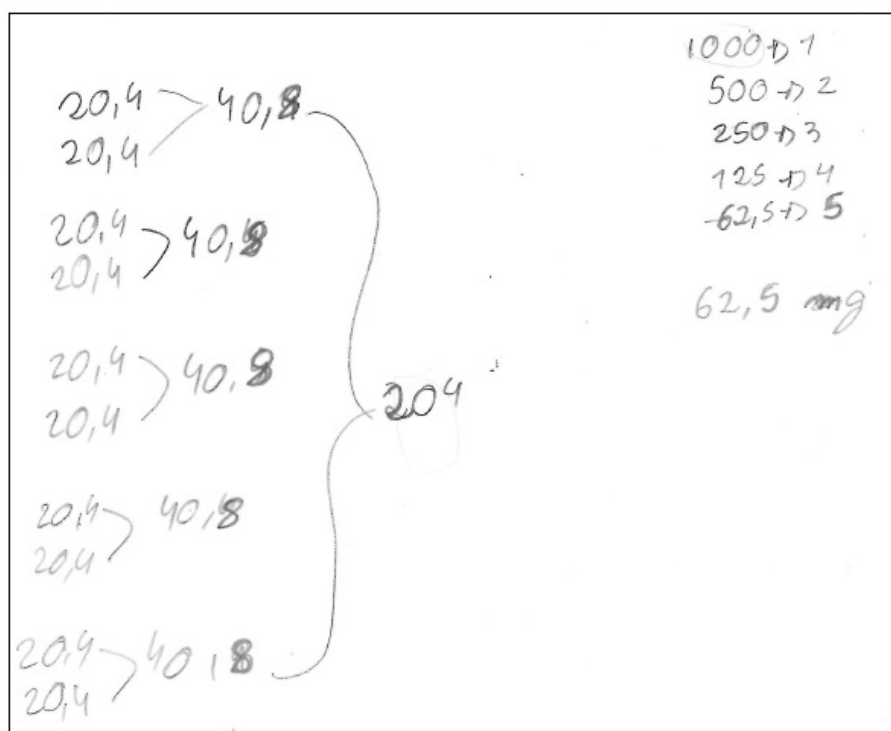 20,4
20,4
40,8
20,4
20,4
40,8
20,4
20,4
40,8
20,4
20,4
40,8
20,4
20,4
40,8
204
1000 → 1
500 → 2
250 → 3
125 → 4
62,5 → 5
62,5 mg